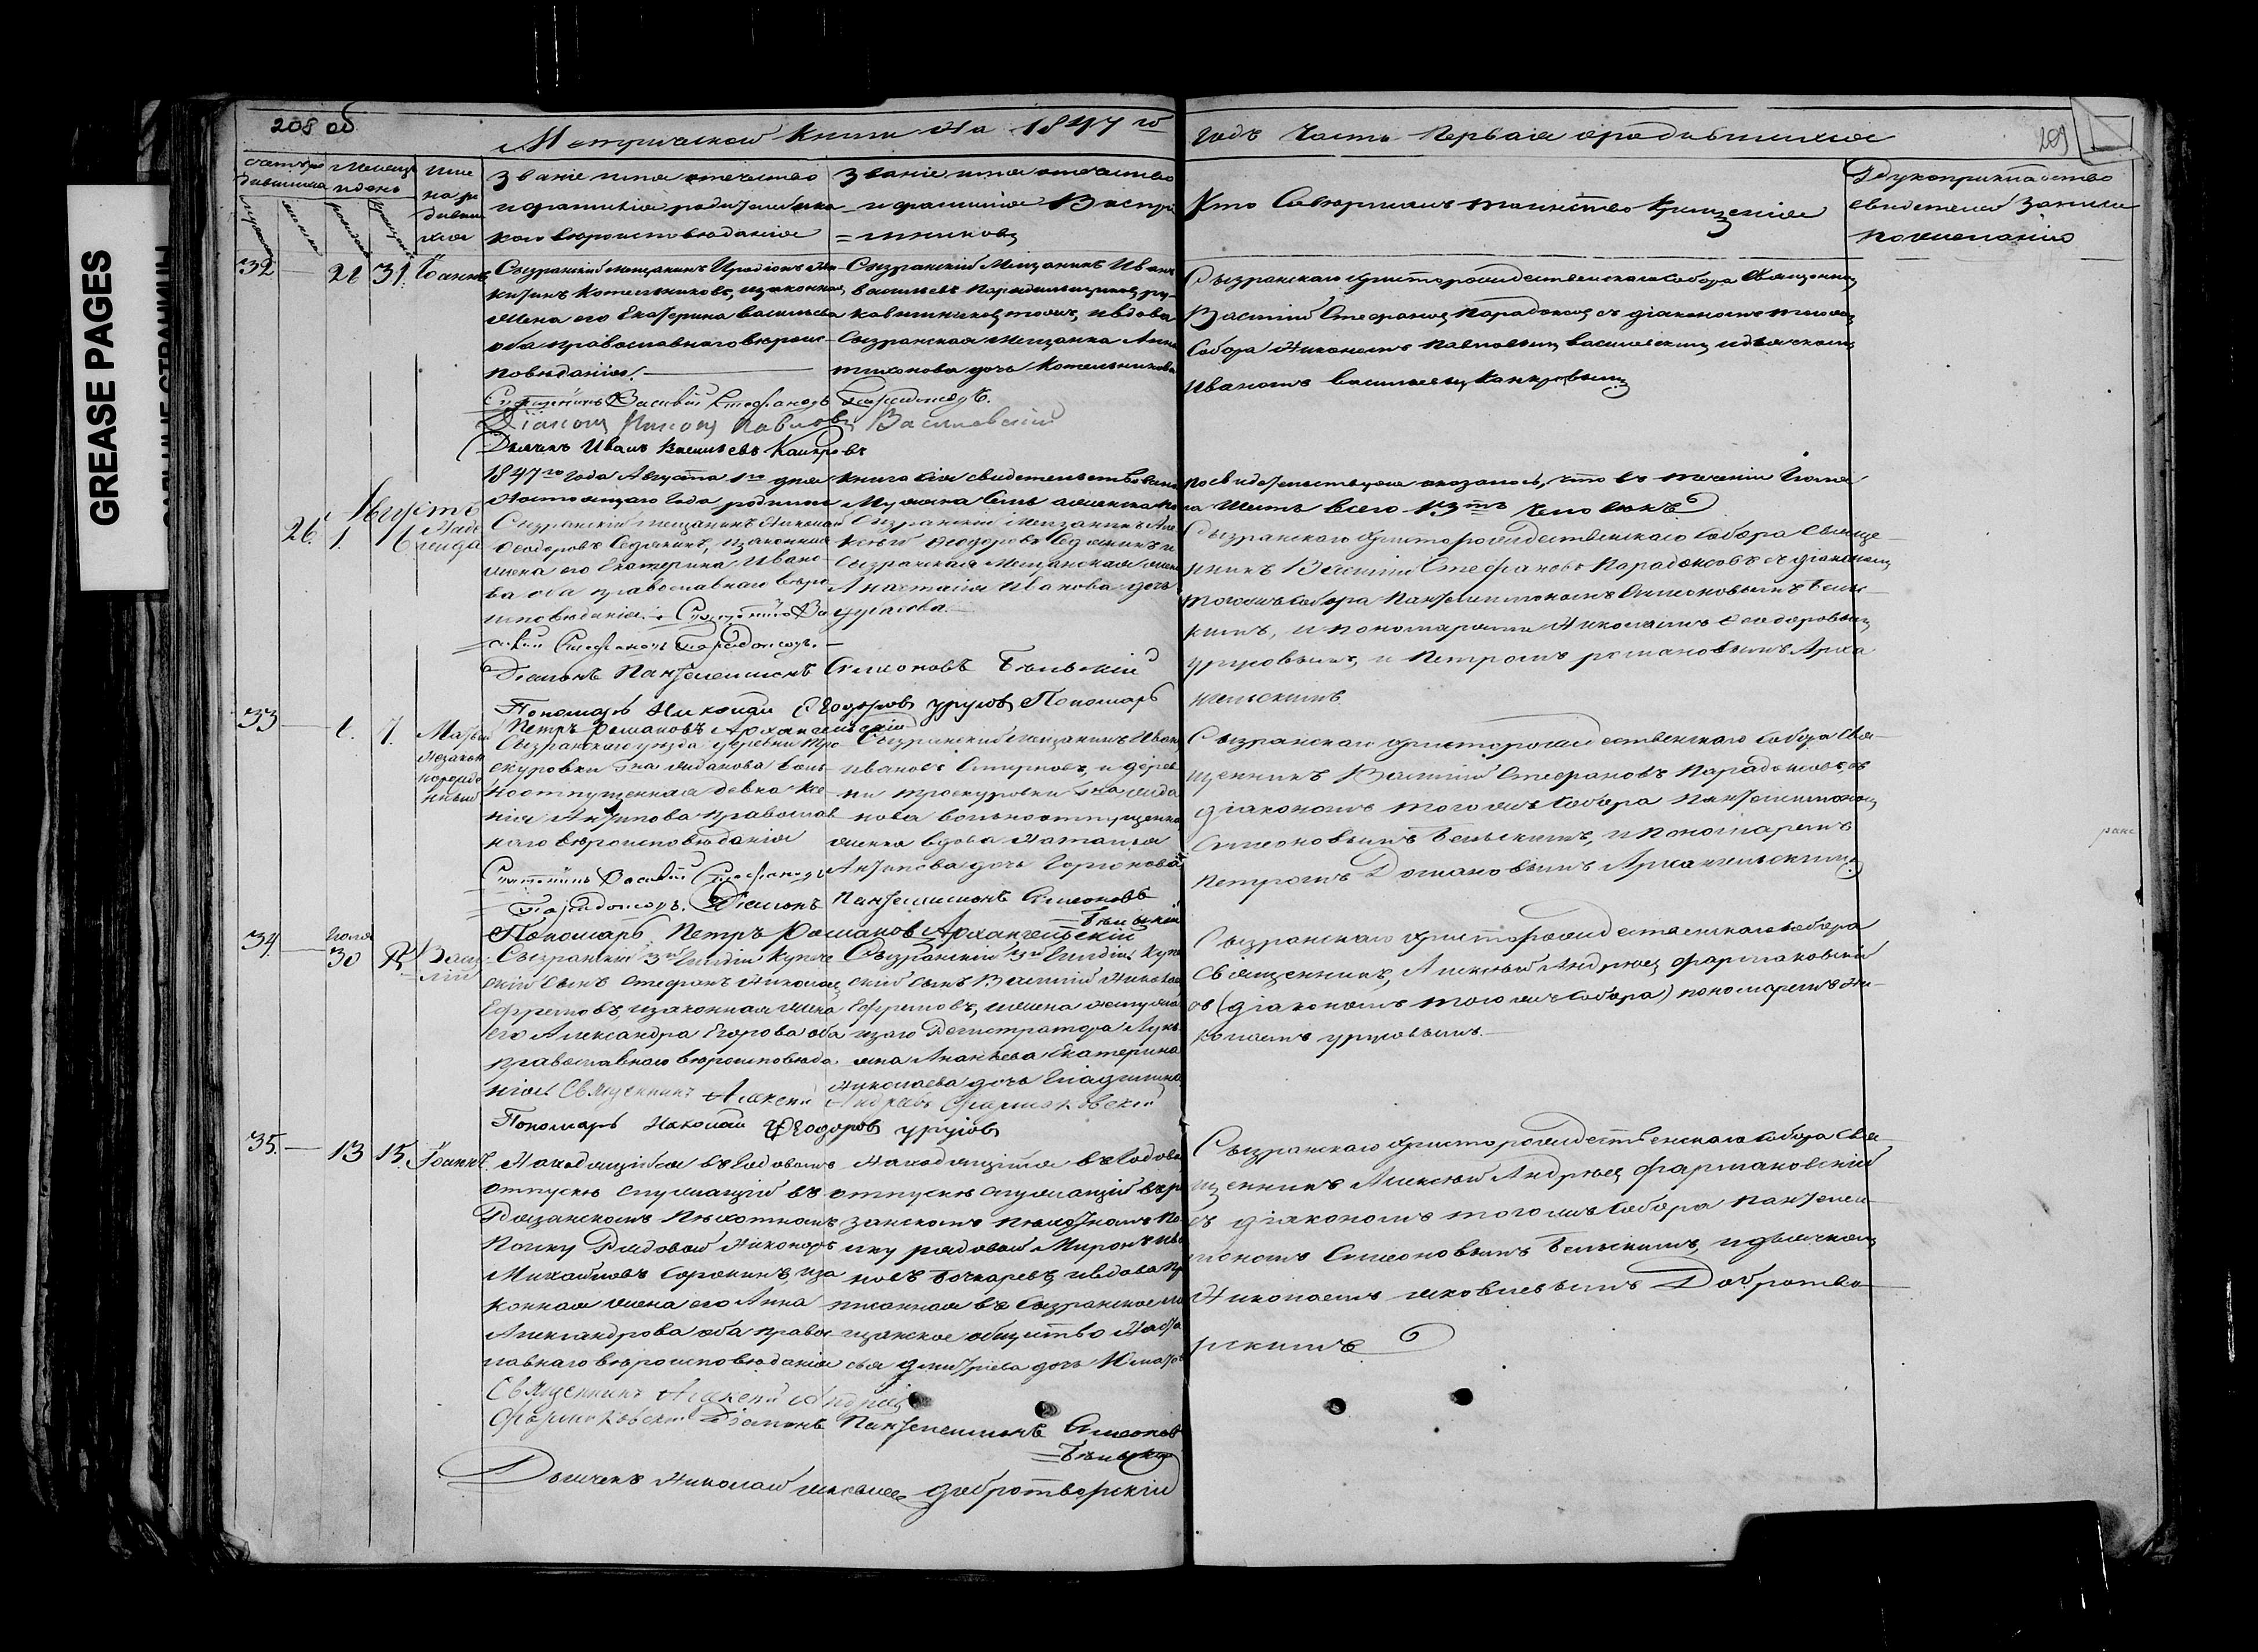 GREASE PAGES
САЛЬНЫЕ СТРАНИЦЫ
208 об
Метрической Книги На 1847 го
Годъ Часть Первая о родившихся
209
Званіе имя отечество
и фамилія родителей и ка
кого вѣроисповѣданія
Званіе имя отечество
и фамилія Воспрі
=емниковъ
Кто Совершалъ таинство Крещенія
Рукоприкладство
свидетелей записи
по желанію
32 28 31. Іоаннъ
Сызранскій мещанинъ
Котельниковъ, и законная
жена его Екатерина Васильева
оба православнаго вѣроис
повѣданія.
Сызранскій Мещанинъ Иванъ
Васильевъ
и вдова
Сызранская Мещанка Анна
тихонова дочь Котельникова
Сызранскаго христорождественскаго Собора Священникъ
Василій Стефановъ Парадоксовъ съ діакономъ тогожъ
Собора Никономъ Павловымъ Василевскимъ и дьячкомъ
Иваномъ Васильевымъ
Священникъ Василій Стефановъ Парадоксовъ.
Діаконъ Никонъ Павловъ Василевскій
Дьячекъ Иванъ Васильевъ
1847го года Августа 1го дня книга сія свидетельствована
по свидетельству оказалось, что въ теченіи Іюля
Настоящаго года родилось Мужеска Семь а женска по
ла Шесть всего 13ть Человѣкъ
Августъ
26. 1. 6 Наде
жида
Сызранскій мещанинъ Николай
Феодоровъ Седякинъ, и законная
жена его Екатерина Ивано
ва оба православнаго вѣро
исповѣданія.
Сызранскій Мещанинъ Але
ксѣй Феодоровъ Седякинъ и
Сызранская Мещанская жена
Анастасія Иванова дочь
Сызранскаго христорождественскаго Собора Священ
никъ Василій Стефановъ Парадоксовъ съ діакономъ
тогожъ Собора Пантелеимономъ Симеоновымъ Бѣль
кимъ, и пономарями Николаемъ Феодоровымъ
Уруковымъ и Петромъ Романовымъ Арха
нгельскимъ
Священникъ Ва
силій Стефановъ Парадоксовъ.
Діаконъ Пантелеимонъ Симеоновъ Бѣльскій
Пономарь Николай Феодоровъ Уруковъ Пономарь
Петръ Романовъ Архангельскій
33 1. 7.
незакон
норожде
нный
Сызранскаго уѣзда деревни Тро
екуровки Гна Жданова воль
ноотпущенная девка Ксе
нія Антипова православ
наго вѣроисповѣданія
Сызранскій Мещанинъ Иванъ
Ивановъ Смирновъ, и дерев
ни Троекуровки Гна Жда
нова вольноотпущенна
женка вдова Наталья
Антипова дочь
Сызранскаго христорождественскаго Собора Свя
щенникъ Василій Стефановъ Парадоксовъ, съ
діакономъ тогожъ Собора Пантелеимономъ
Симеоновымъ Бельскимъ, и пономаремъ
Петромъ Романовымъ Архангельскимъ
Священникъ Василій Стефановъ
Парадоксовъ. Діаконъ Пантелеимонъ Симеоновъ
Бѣльскій
Пономарь Петръ Романовъ Архангельскій
34. Іюля
30 Васи
лій
Сызранскій 3й Гильдіи Купече
скій Сынъ Стефанъ Николаевъ
Ефремовъ, и законная жена
его Александра Егорова оба
православнаго вѣроисповѣда
нія
Сызранскій 3й Гильдіи Купе
скій сынъ Василій Николаевъ
Ефремовъ, и жена
Регистратора
Екатерина
Николаева дочь
Сызранскаго христорождественскаго Собора
Священникъ, Алексѣй Андреевъ Фармаковскій
съ (діакономъ тогожъ Собора) пономаремъ Ни
колаемъ Уруковымъ.
Священникъ Алексѣй Андреевъ Фармаковскій
Пономарь Николай Феодоровъ Уруковъ
35. 13 15. Іоаннъ.
Находящійся въ Годовомъ
отпуске служащій въ
Рязанскомъ Пѣхотномъ
Полку Рядовой Никоноръ
Михайловъ Сорокинъ, и за
конная жена его Анна
Александрова оба правос
лавнаго вѣроисповѣданія
Находящійся въ Годово
отпуске служащій въ Ря
занскомъ пѣхотномъ По
лку рядовой Миронъ Ива
новъ Бочкаревъ, и вдова пр
писанная въ Сызранское ме
щанское общество Наста
сья Дмитріева дочь
Сызранскаго христорождественскаго Собора Свя
щенникъ Алексѣй Андреевъ Фармаковскій
съ діакономъ тогожъ Собора Пантелеи
мономъ Симеоновымъ Бельскимъ, и дьячкомъ
Николаемъ Яковлевымъ Добротво
рскимъ
Священникъ Алексѣй Андреевъ
Фармаковскій Діаконъ Пантелеимонъ Симеоновъ
Бѣльскій
Дьячекъ Николай Яковлевъ Добротворскій